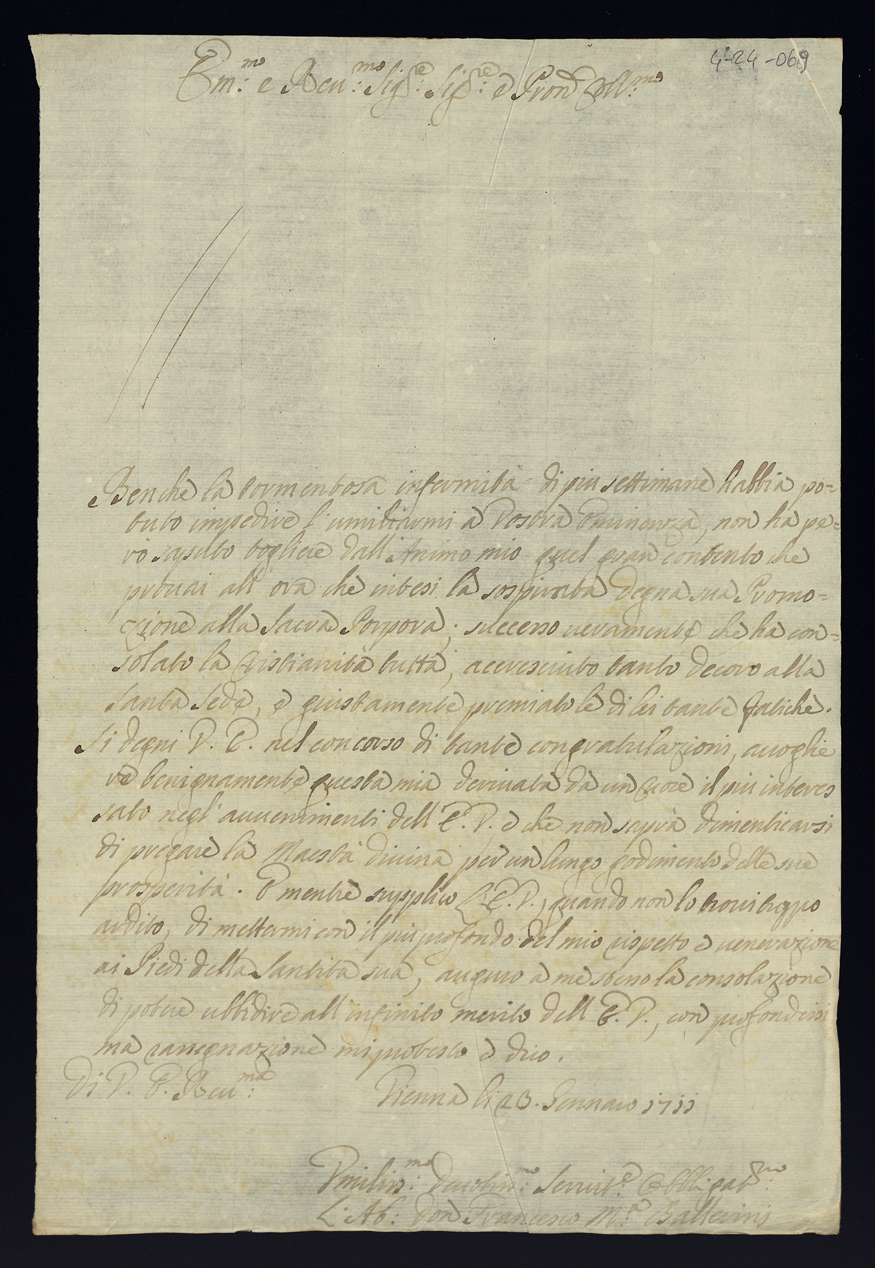 4-24-069
Em:mo e Reu:mo Sig:re Sig:re e Pron Col:mo
Benche la tormentosa infermità di piu settimane habbia po=
tuto impedire l'umiliarmi à Vostra Eminenza, non ha pe=
rò saputo togliere dall'Animo mio quel gran contento che
prouai all'ora che intesi la sospirata degna sua Promo=
zione alla Sacra Porpora; successo ueramente che ha con=
solato la Cristianità tutta, accresciuto tanto decoro alla
Santa Sede, e giustamente premiato le di lei tante fatiche.
Si degni V. E. nel concorso di tante congratulazioni, accoglie
re benignamente questa mia deriuata da un Cuore il piu interes
sato negl'auuenimenti dell'E. V. e che non saprà dimenticarsi
di pregare la Maestà diuina per un lungo godimento delle sue
prosperità. E mentre supplico l'E. V., quando non lo troui troppo
ardito, di mettermi con il piu profondo del mio rispetto e uenerazione
ai Piedi della Santità sua, auguro à me stesso la consolazione
di potere ubbidire all'infinito merito dell'E. V., con profondissi
ma rassegnazione mi protesto e dico.
Di V. E. Reu:ma
Vienna li 23. Gennaro 1711
Vmiliss:mo Deuotiss:mo Seruit:e Obbligat:mo
L'Ab: Don Francesco M:a Ballerini